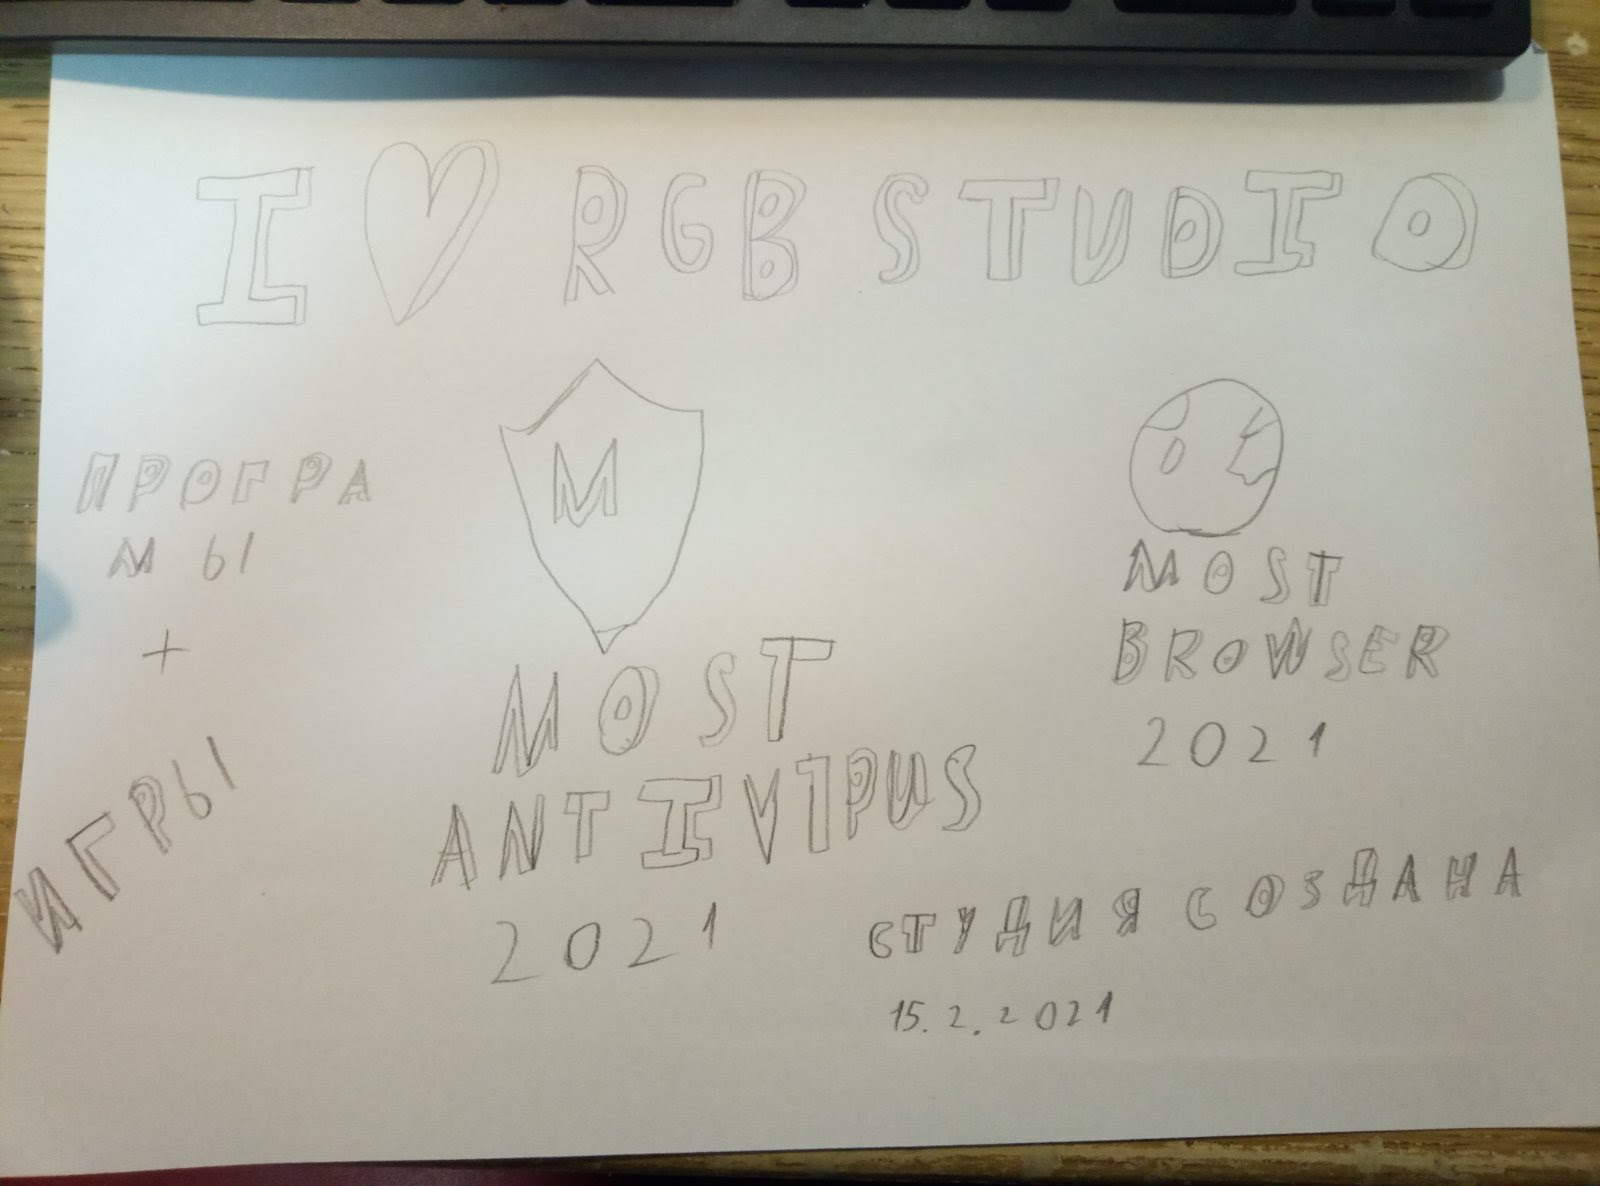 I ♥ RGB STUDIO
ПРОГРА
МЫ
+
ИГРЫ
M
MOST
ANTIVIPUS
2021
MOST
BROWSER
2021
СТУДИЯ СОЗДАНА
15.2.2021